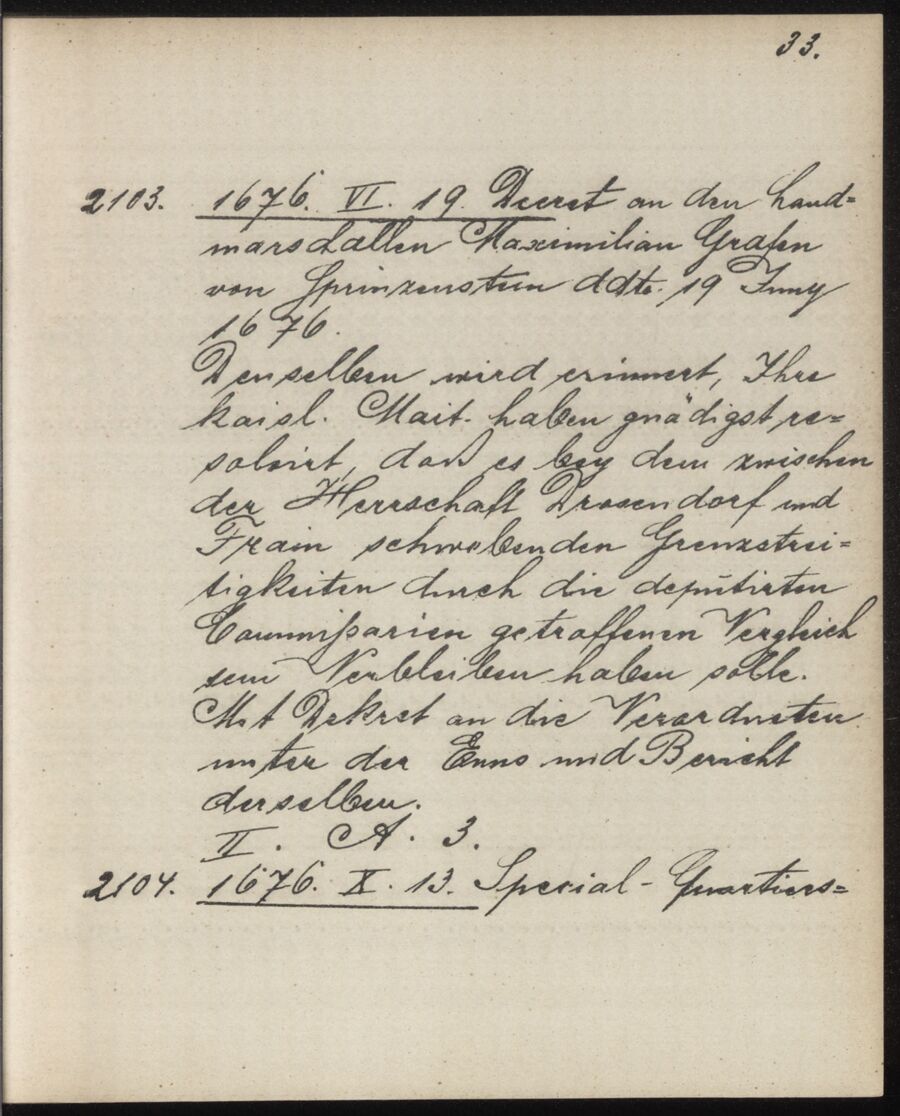 33.
2103. 1676. VI. 19. Decret an den Land=
marschallen Maximilian Grafen
von Sprinzenstein ddto. 19 Juny
1676.
Denselben wird erinnert, Ihre
kaisl. Mait. haben gnädigst re=
solvirt, daß es bey dem zwischen
der Herrschaft Drosendorf und
Frain schwebenden Grenzstrei=
tigkeiten durch die deputirten
Commissarien getroffenen Vergleich
sein Verbleiben haben solle.
Mit Dekret an die Verordneten
unter der Enns und Bericht
derselben.
II. A. 3.
2104. 1676. X. 13. Special-Quartiers=